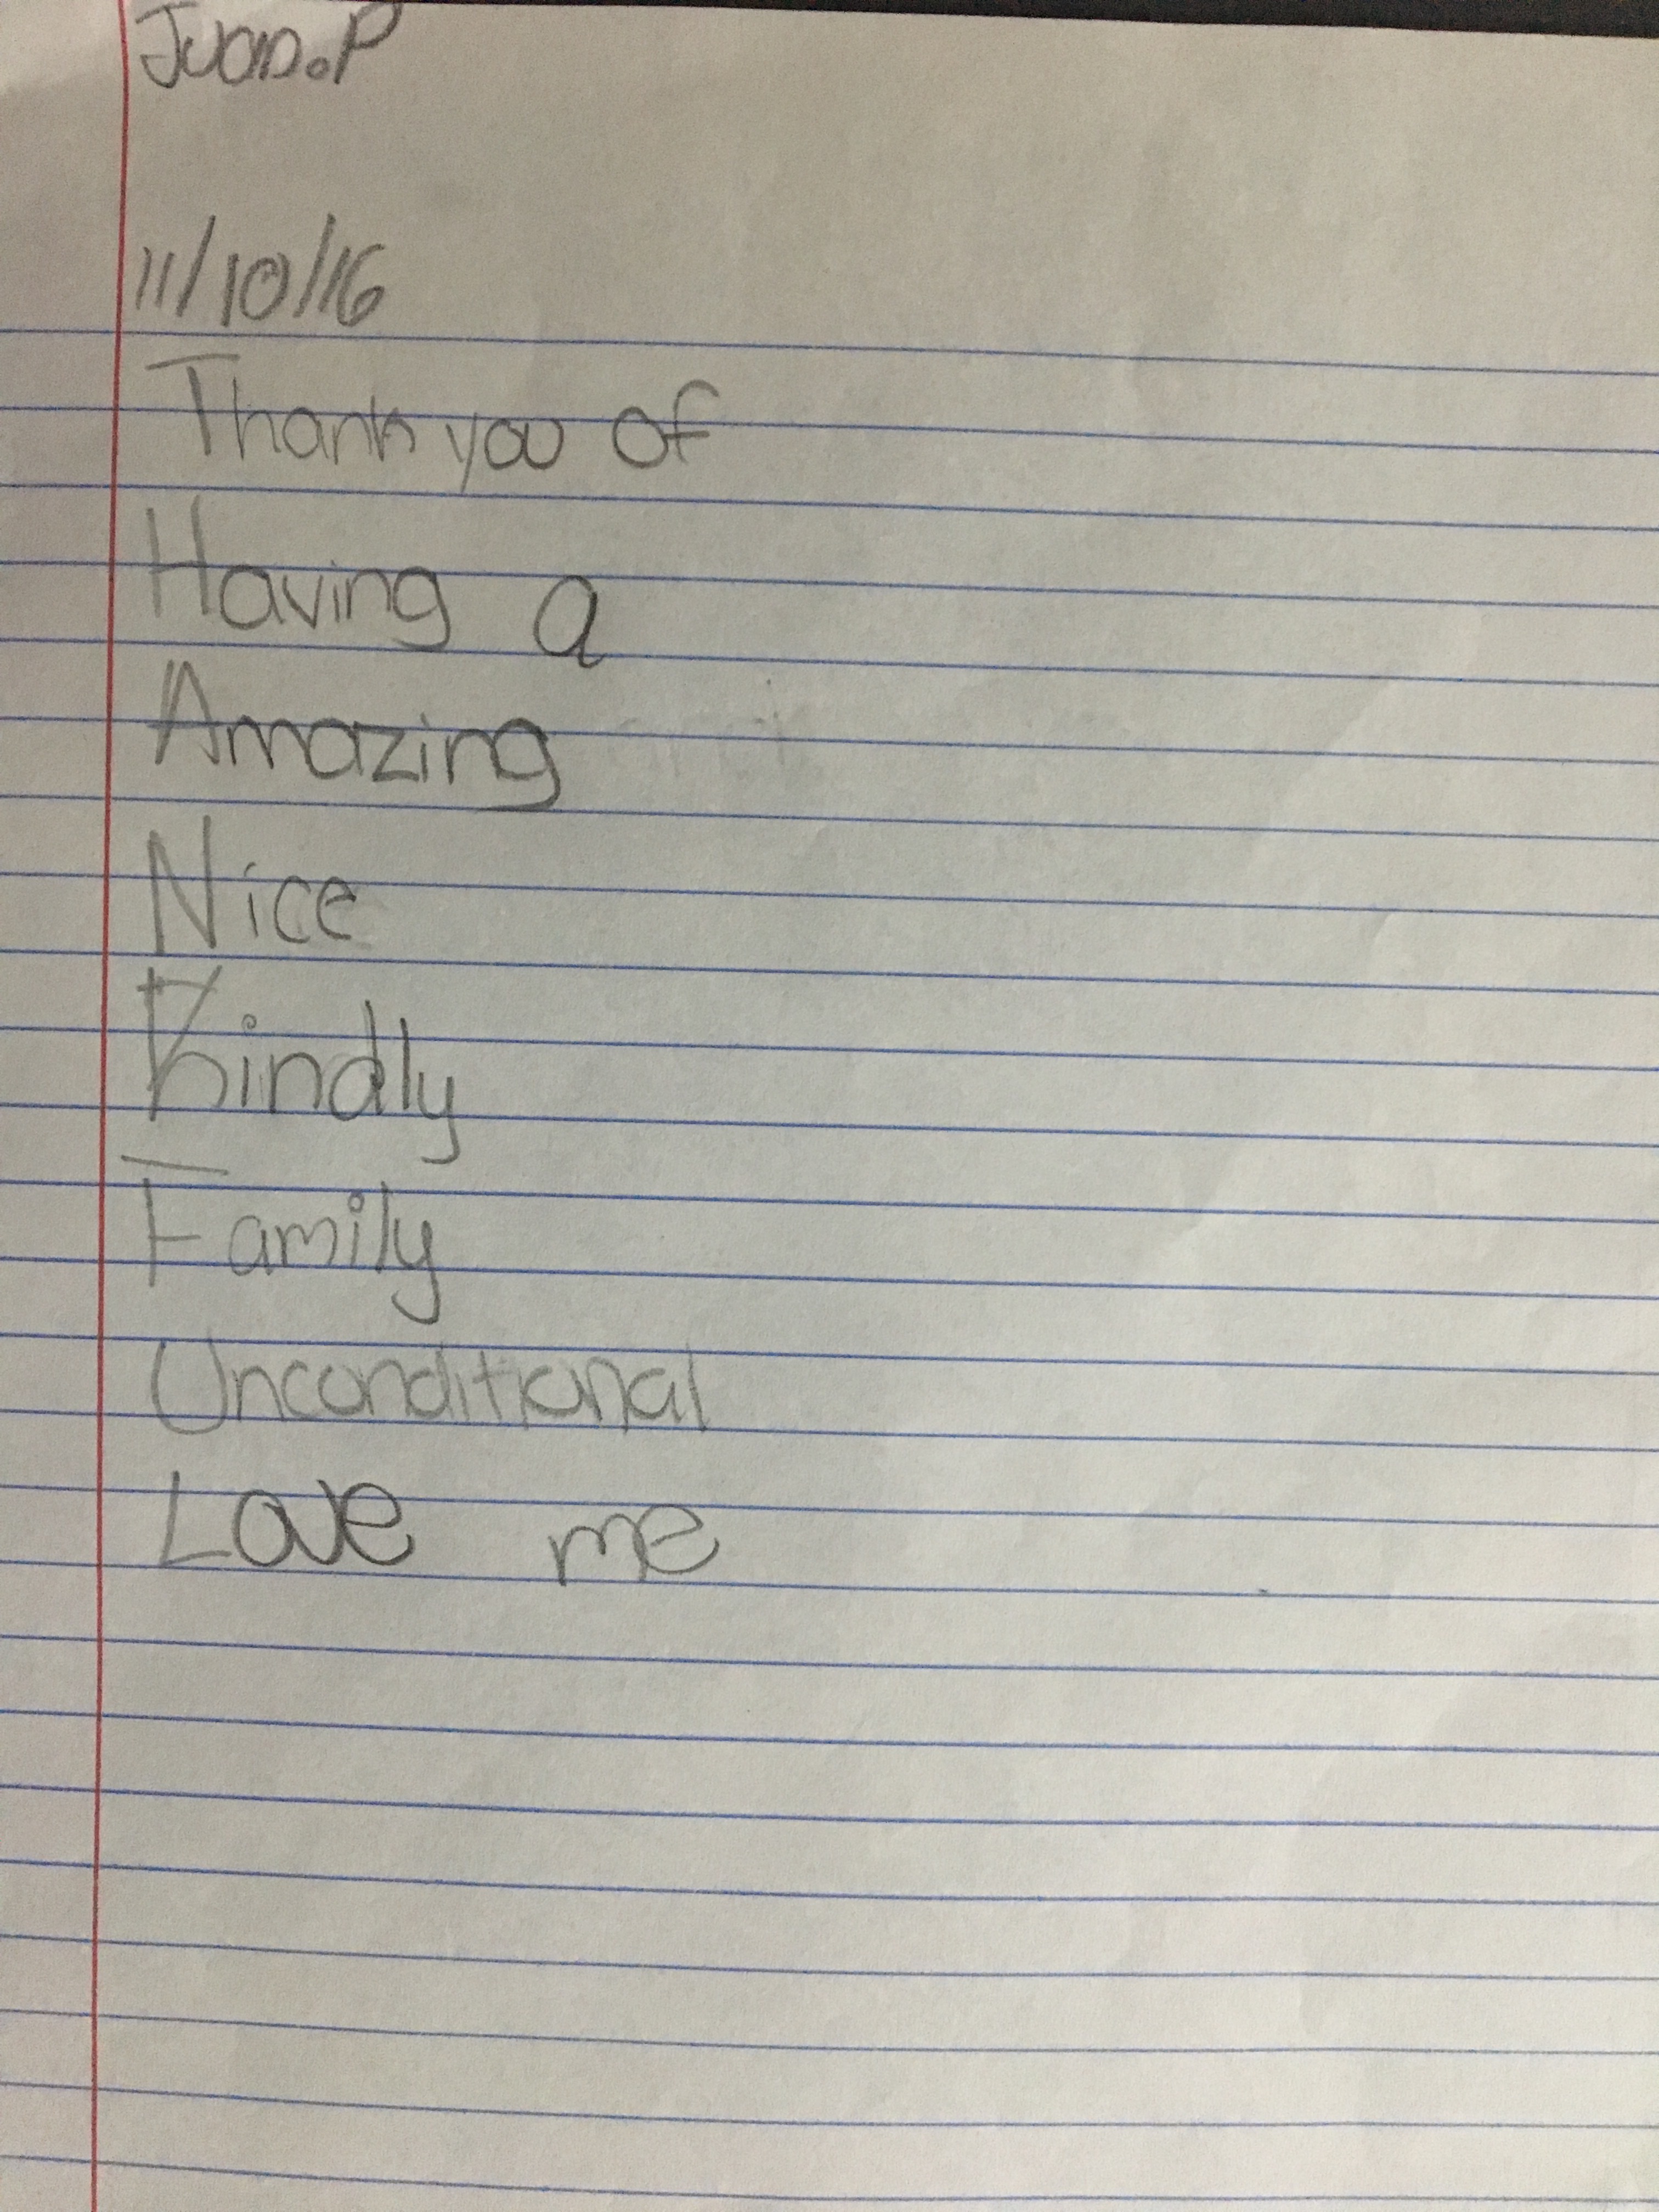 Juan.P
11/10/16
Thank you of
Having a
Amazing
Nice
Kindly
Family
Unconditional
Love me